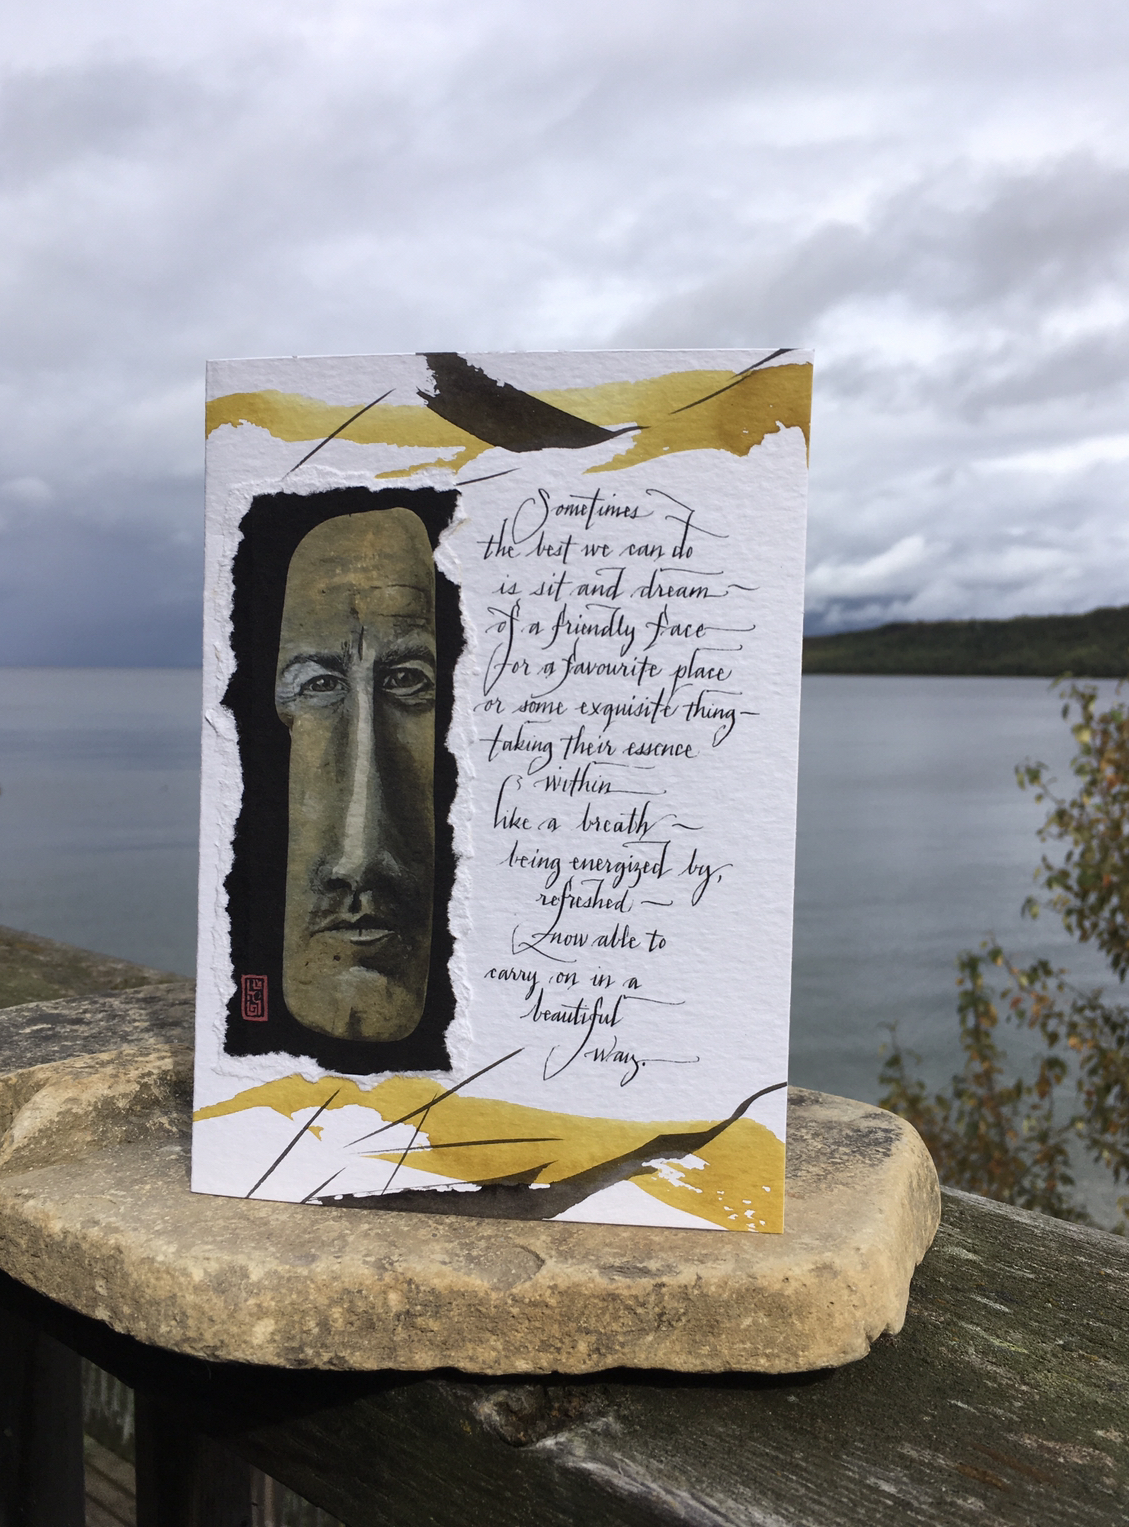 Sometimes
the best we can do
is sit and dream
of a friendly face
for a favourite place
or some exquisite thing—
taking their essence
within
like a breath
being energized by,
refreshed —
now able to
carry on in a
beautiful
way.